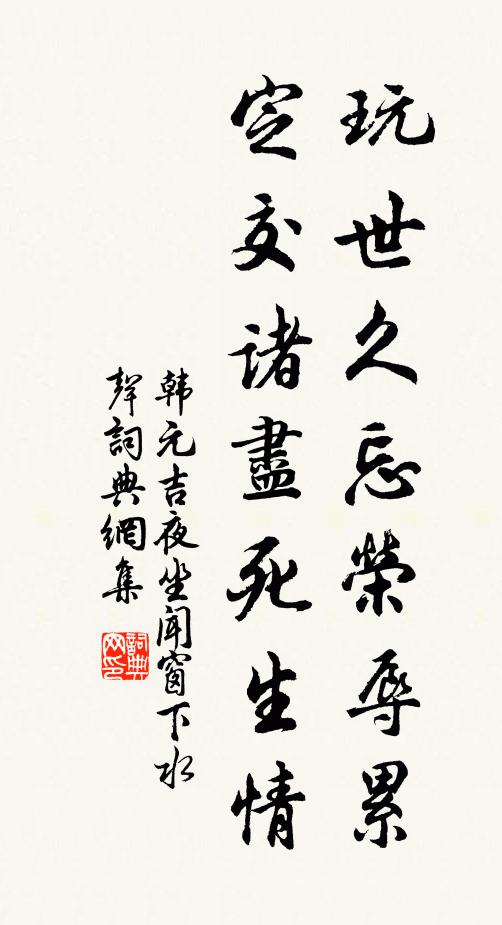 玩世久忘榮辱累
定交諸盡死生情
韩元吉夜坐闻窗下水
聲詞典網集
詞典网印